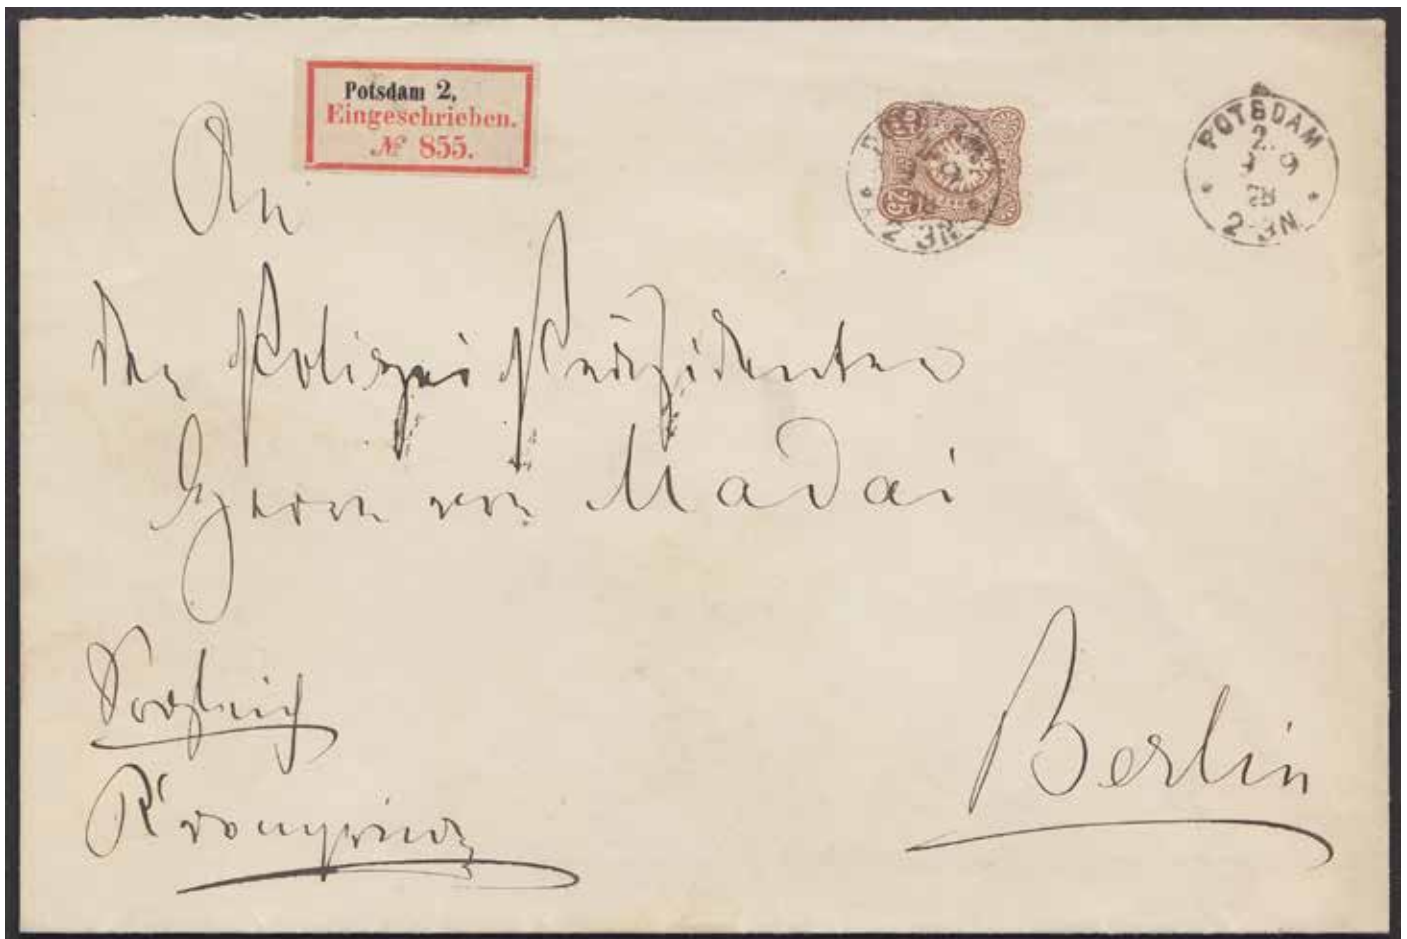 Potsdam 2,
Eingeschrieben.
№ 855.
25 25
POTSDAM
2.
9
2-3N
An
den Polizei Präsidenten
Herrn von Madai
Berlin
Kronprinz